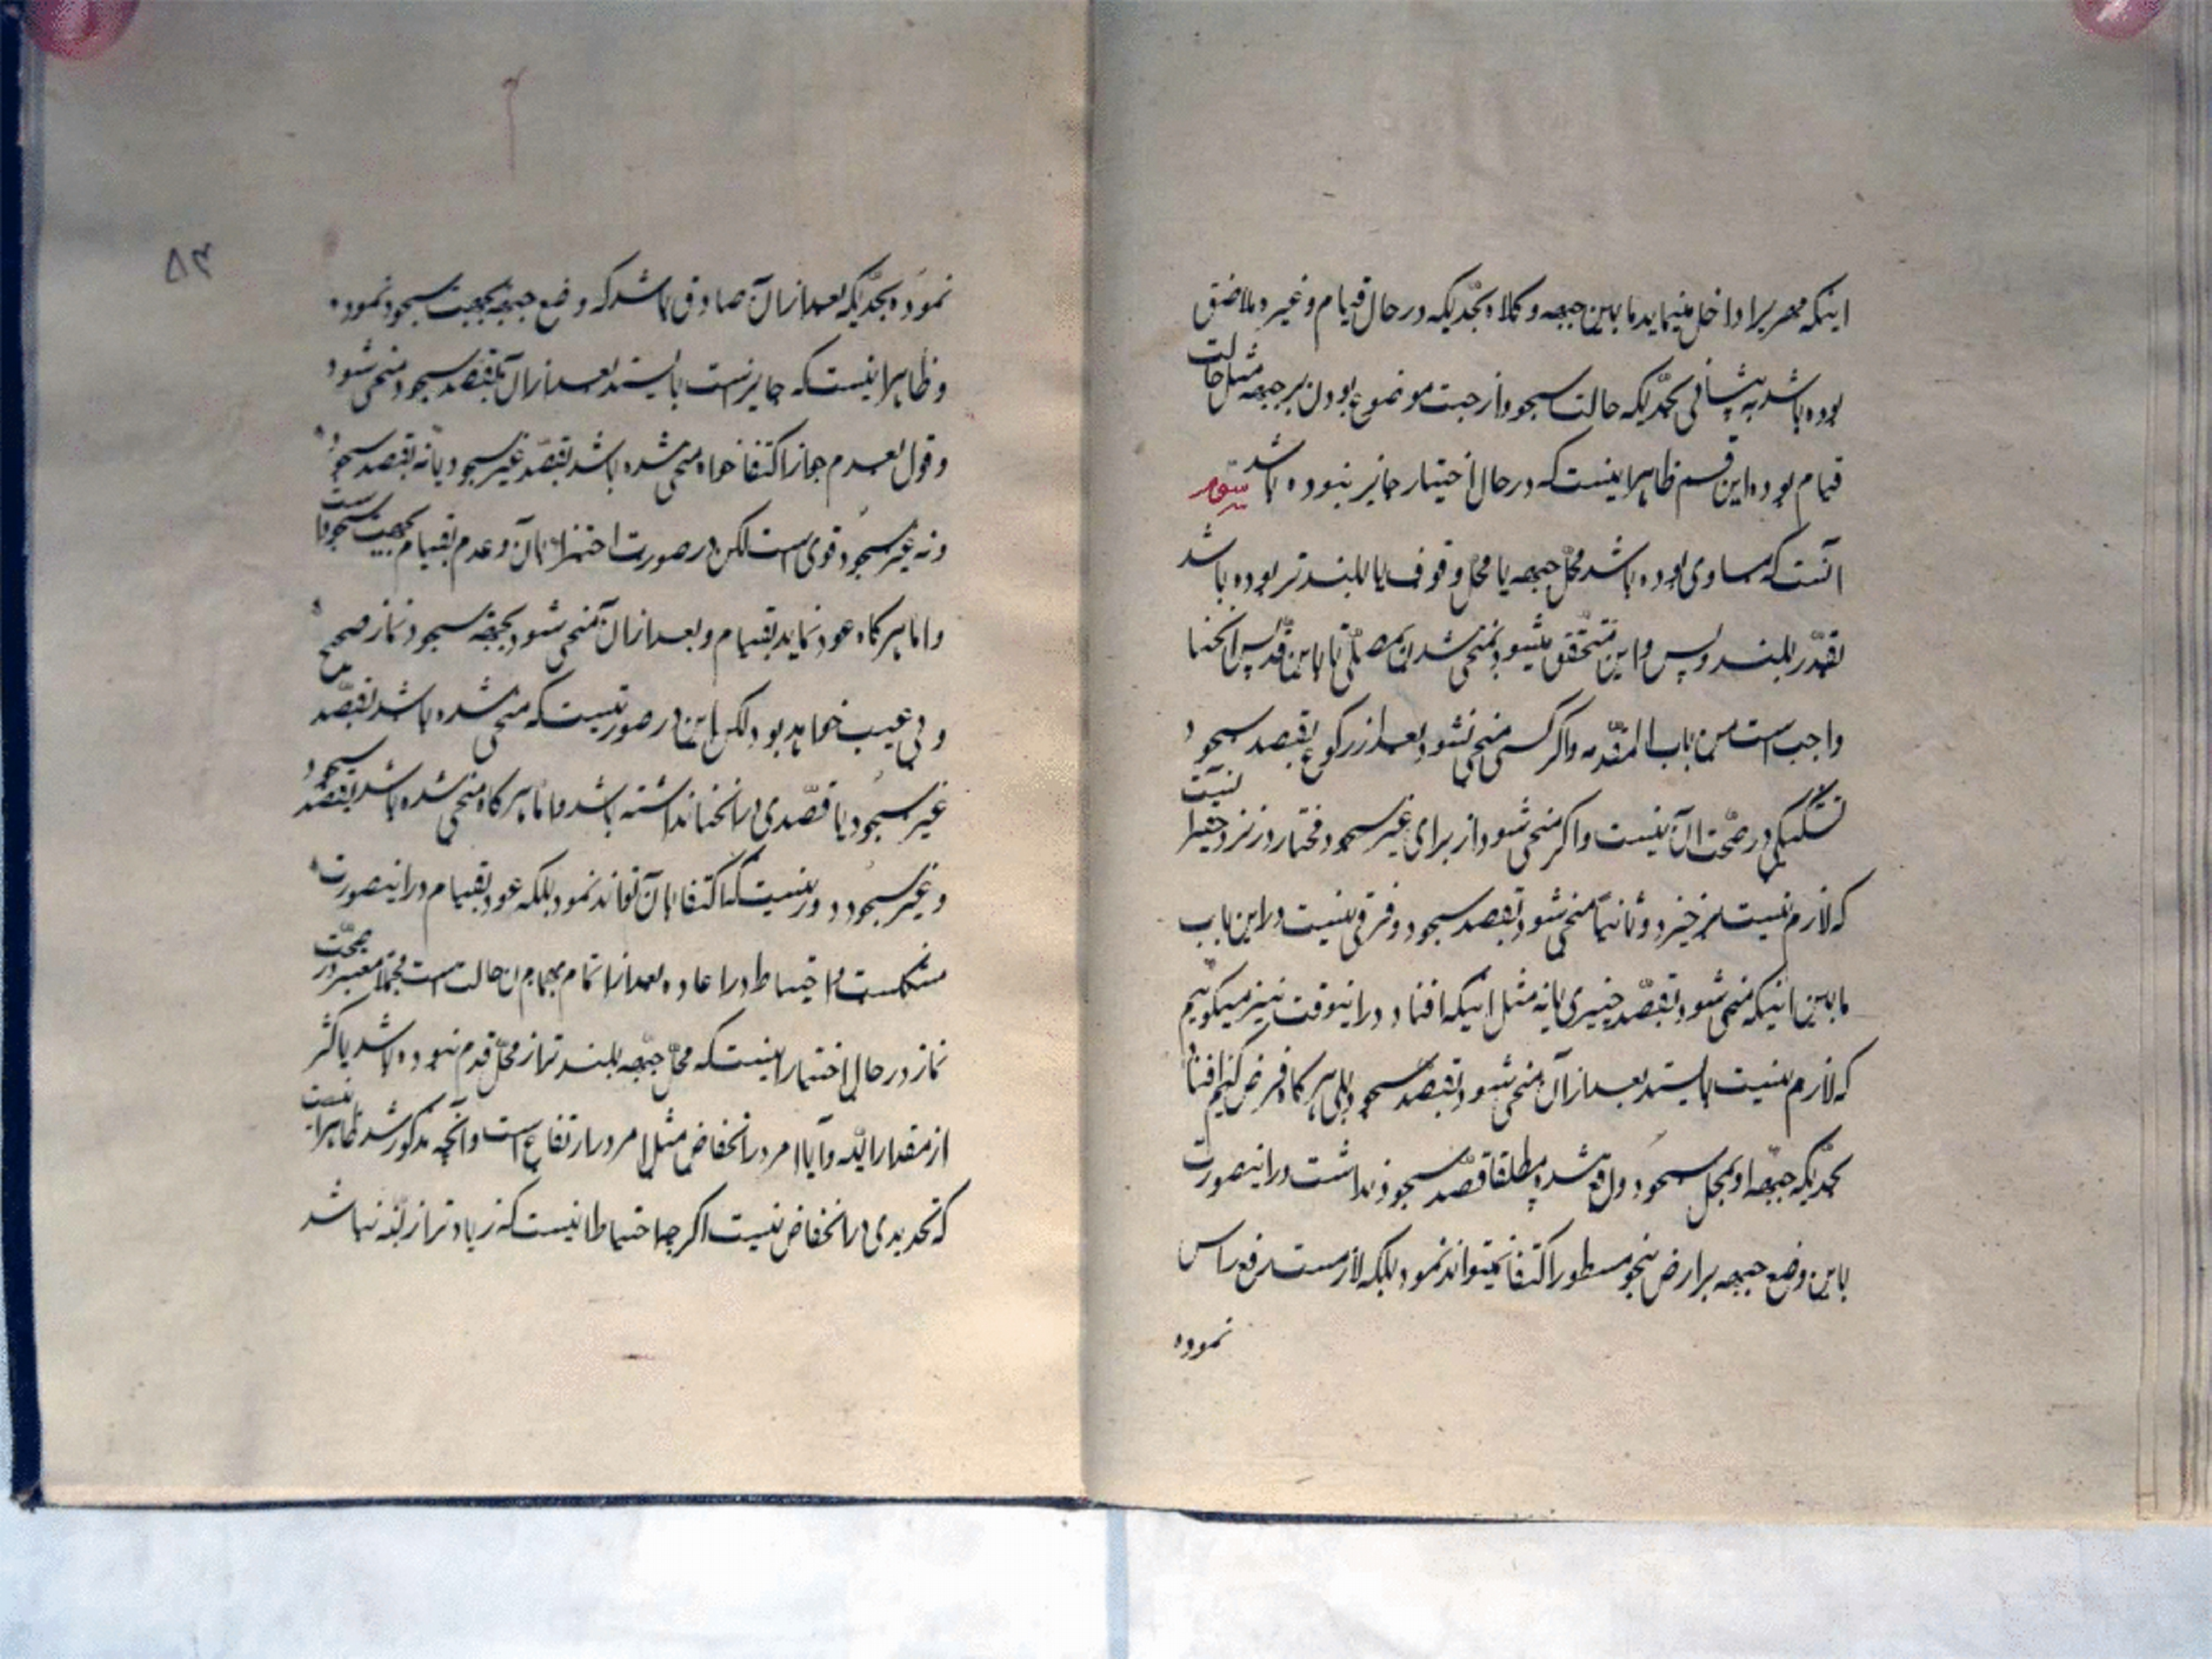 اینکه مهر را داخل مینماید ما بین جبهه و کلاه بحدیکه در حال قیام و غیره ملاصق
بوده باشد به پیشانی بحدیکه حالت سجود از جهت موضوع بودن بر جبهه مثل حالت
قیام بوده این قسم ظاهر اینست که در حال اختیار جایز نبوده باشد سوم
آنست که مساوی بوده باشد محل جبهه با محل وقوف یا بلند تر بوده باشد
بقدر بلند و پس و این متحقق میشود بمنحی شدن مصلی تا باین قدر پس انحنا
واجب است من باب المقدمه و اکر کسی منحنی نشود بعد از رکوع بقصد سجود
تشکیکی در صحت آن نیست و اکر منحنی شود از برای غیر سجود مختار در نزد حقیر اینست
که لازم نیست بر خیزد و ثانیا منحنی شود بقصد سجود و فرقی نیست در این باب
ما بین اینکه منحنی شود بقصد چیزی یا نه مثل اینکه افتاد در اینوقت نیز میکوییم
که لازم نیست بایستد بعد از آن منحنی شود بقصد سجود بلی هر کاه فرض کنیم افتاد
بحدیکه جبهه او بمحل سجود واقع شد و مطلقا قصد سجود نداشت در اینصورت
باین وضع جبهه بر ارض بنحو مسطور اکتفا نمیتواند نمود بلکه لازمست رفع راس
نموده
۵۳
نموده بحدیکه بعد از آن صادق باشد که وضع جبهه بجهت سجود نموده
و ظاهر اینست که جایز است بایستد بعد از آن بقصد سجود منحنی شود
و قول بعدم جواز اکتفا خواه منحنی شده باشد بقصد غیر سجود یا نه بقصد سجود
و نه غیر سجود قوی است لکن در صورت اجتزاء بآن و عدم قیام بجهت سجود است
و اما هر کاه عود نماید بقیام و بعد از آن منحنی شود بجهة سجود نماز صحیح
و بی عیب خواهد بود لکن این در صورتیست که منحنی شده باشد بقصد
غیر سجود یا قصدی در انحنا نداشته باشد و اما هر کاه منحنی شده باشد بقصد سجود
و غیر سجود دور نیست که اکتفا بآن تواند نمود بلکه عود بقیام در اینصورت
مشکلست و احتیاط در اعاده بعد از اتمام بهمان حالت است مجملا معتبر در صحت
نماز در حال اختیار اینست که محل جبهه بلند تر از محل قدم نبوده باشد باکثر
از مقدار لبنه و آیا امر در انخفاض مثل امر در ارتفاع است و آنچه مذکور شد ظاهر اینست
که تحدیدی در انخفاض نیست اکر چه احتیاط اینست که زیاد تر از لبنه نباشد